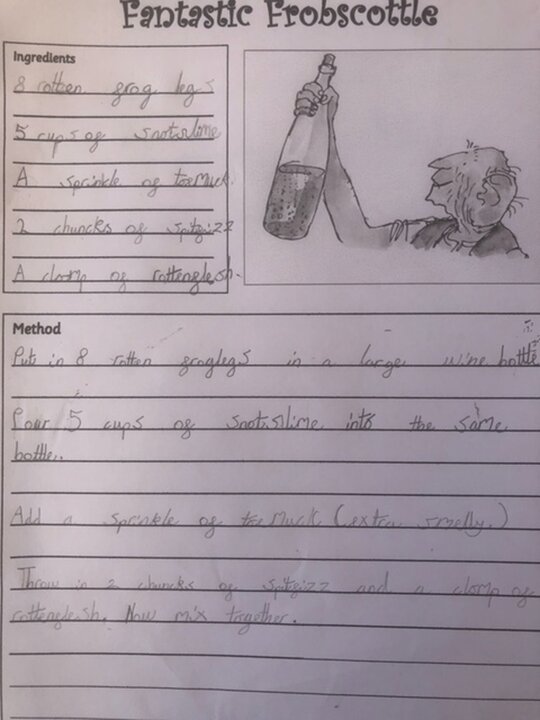 Fantastic Frobscottle
Ingredients
8 rotten frog legs
5 cups of snotslime
A sprinkle of toeMuck.
2 chuncks of spitfizz
A clomp of rottenflesh.
Method
Put in 8 rotten froglegs in a large wine bottle
Pour 5 cups of snotslime into the same
bottle.
Add a sprinkle of toe Muck (extra smelly.)
Throw in 2 chuncks of spitfizz and a clomp of
rottenflesh. Now mix together.